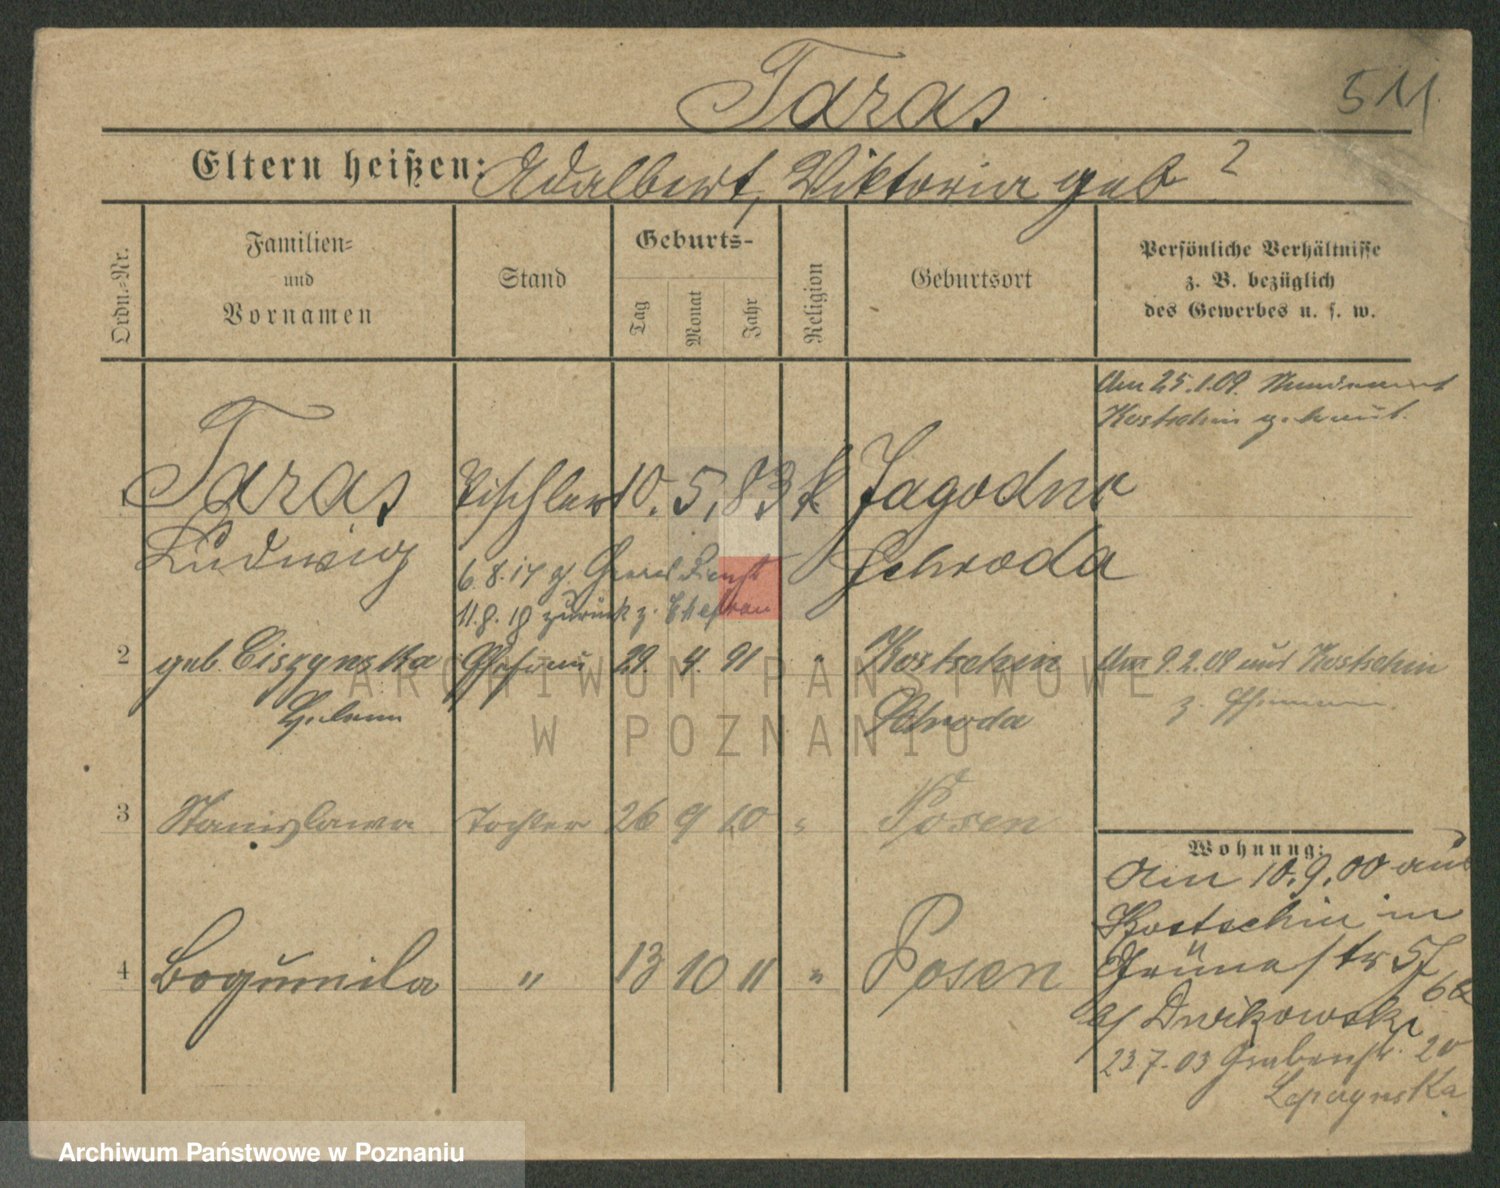 Taras
511
Eltern heißen: Adalbert, Viktoria geb ?
Ordn.-Nr.
Familien-
und
Vornamen
Stand
Geburts-
Tag
Monat
Jahr
Religion
Geburtsort
Persönliche Verhältnisse
z. B. bezüglich
des Gewerbes u. s. w.
Am 25.1.09.
Kostschin getraut.
1 Taras Tischler 10. 5. 83 k Jagodno
Ludwig Schroda
6.8.17 Dienst
11.8.18 zurück z. Ehefrau
2 geb. Ciszynska Ehefrau 29. 4. 91 " Kostschin
Am 9.2.09 aus Kostschin
Helena Schroda
z. Ehemann.
3 Stanislawa Tochter 26 9 10 " Posen
4 Bogumila " 13 10 11 " Posen
Wohnung:
Am 10.9.00 aus
Kostschin in
Grünestr 57
b/
23.7.03 Grabenstr. 20
ARCHIWUM PAŃSTWOWE
W POZNANIU
Archiwum Państwowe w Poznaniu